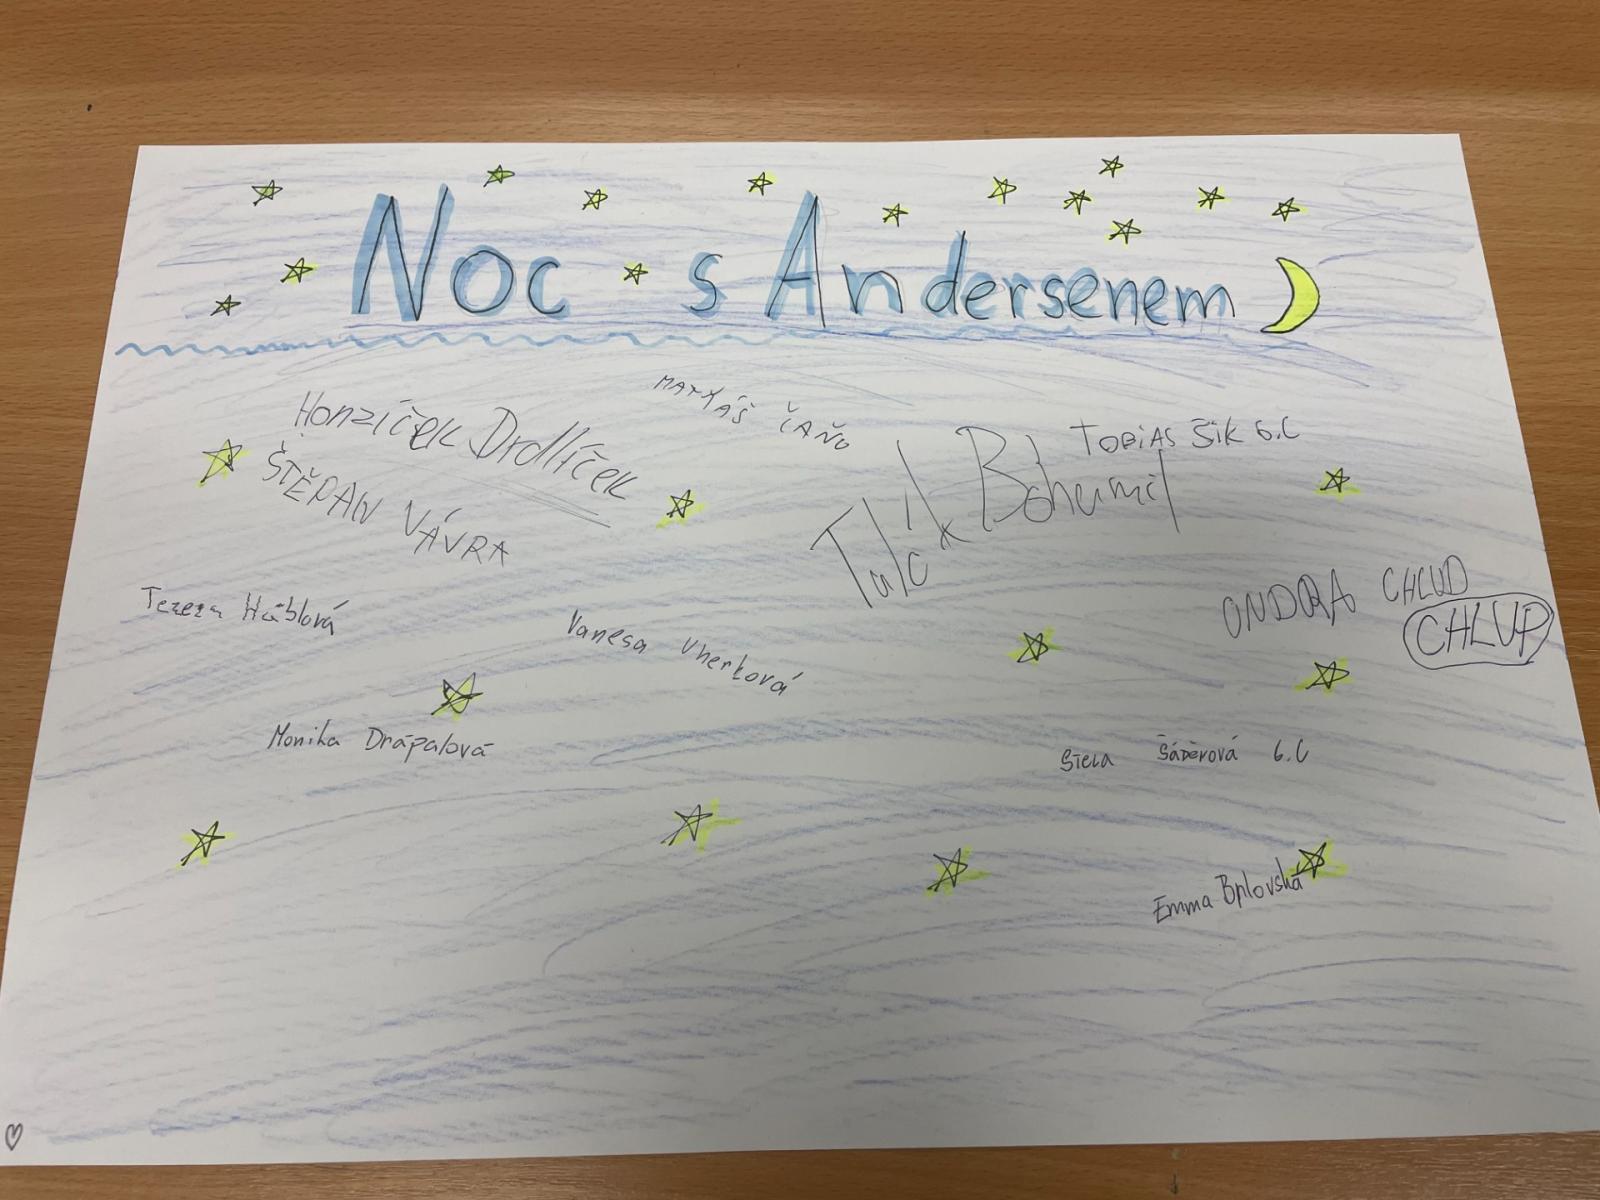 Noc s Andersenem
MATYÁŠ ČAŇO
Honzíček Drdlíček
TOBIAS ŠIK 6.C
ŠTĚPÁN VÁVRA
Bohumil
ONDRA CHLUD
CHLUP
Tereza Háblová
Vanesa Uherková
Monika Drápalová
Stela Šáderová 6.C
Emma